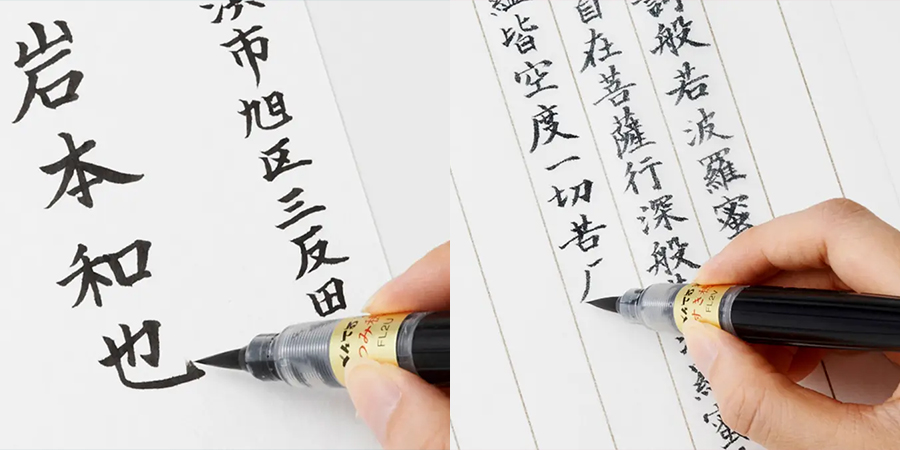 市旭区三反田
岩本和也
ぺんてる
つみ穂
FL2U
般若波羅蜜
自在菩薩行深般
蜜
皆空度一切苦
ぺんてる
FL2V